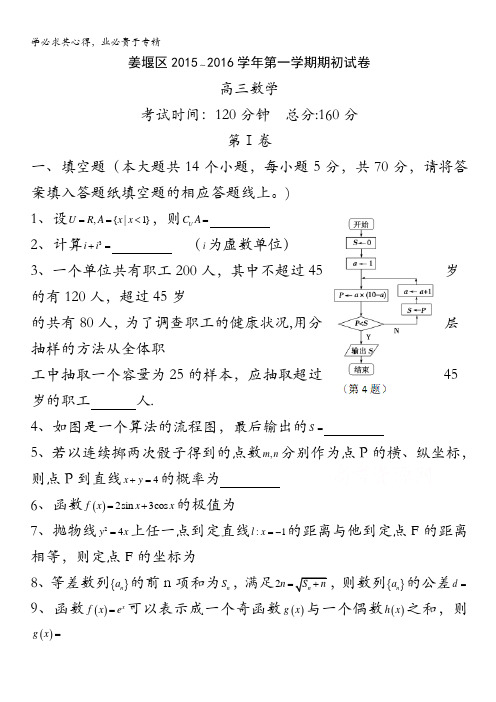 学必求其心得，业必贵于专精
姜堰区 2015－2016 学年第一学期期初试卷
高三数学
考试时间：120 分钟　总分:160 分
第 I 卷
一、填空题（本大题共 14 个小题，每小题 5 分，共 70 分，请将答
案填入答题纸填空题的相应答题线上。)
1、设U = R, A = {x | x < 1}，则C_U A =
2、计算i + i³ =　（i为虚数单位）
3、一个单位共有职工 200 人，其中不超过 45 岁
的有 120 人，超过 45 岁
的共有 80 人，为了调查职工的健康状况,用分 层
抽样的方法从全体职
工中抽取一个容量为 25 的样本，应抽取超过 45
岁的职工　人.
开始
S←0
a←1
P←a×(10-a)
a←a+1
S←P
P<S
N
Y
输出 S
结束
（第 4 题）
4、如图是一个算法的流程图，最后输出的S =
5、若以连续掷两次骰子得到的点数m,n分别作为点 P 的横、纵坐标，
则点 P 到直线x + y = 4的概率为
6、函数f(x) = 2sin x + 3cos x的极值为
7、抛物线y² = 4x上任一点到定直线l : x = -1的距离与他到定点 F 的距离
相等，则定点 F 的坐标为
8、等差数列{aₙ}的前 n 项和为Sₙ，满足2n = √(Sₙ + n)，则数列{aₙ}的公差d =
9、函数f(x) = eˣ可以表示成一个奇函数g(x)与一个偶数h(x)之和，则
g(x) =